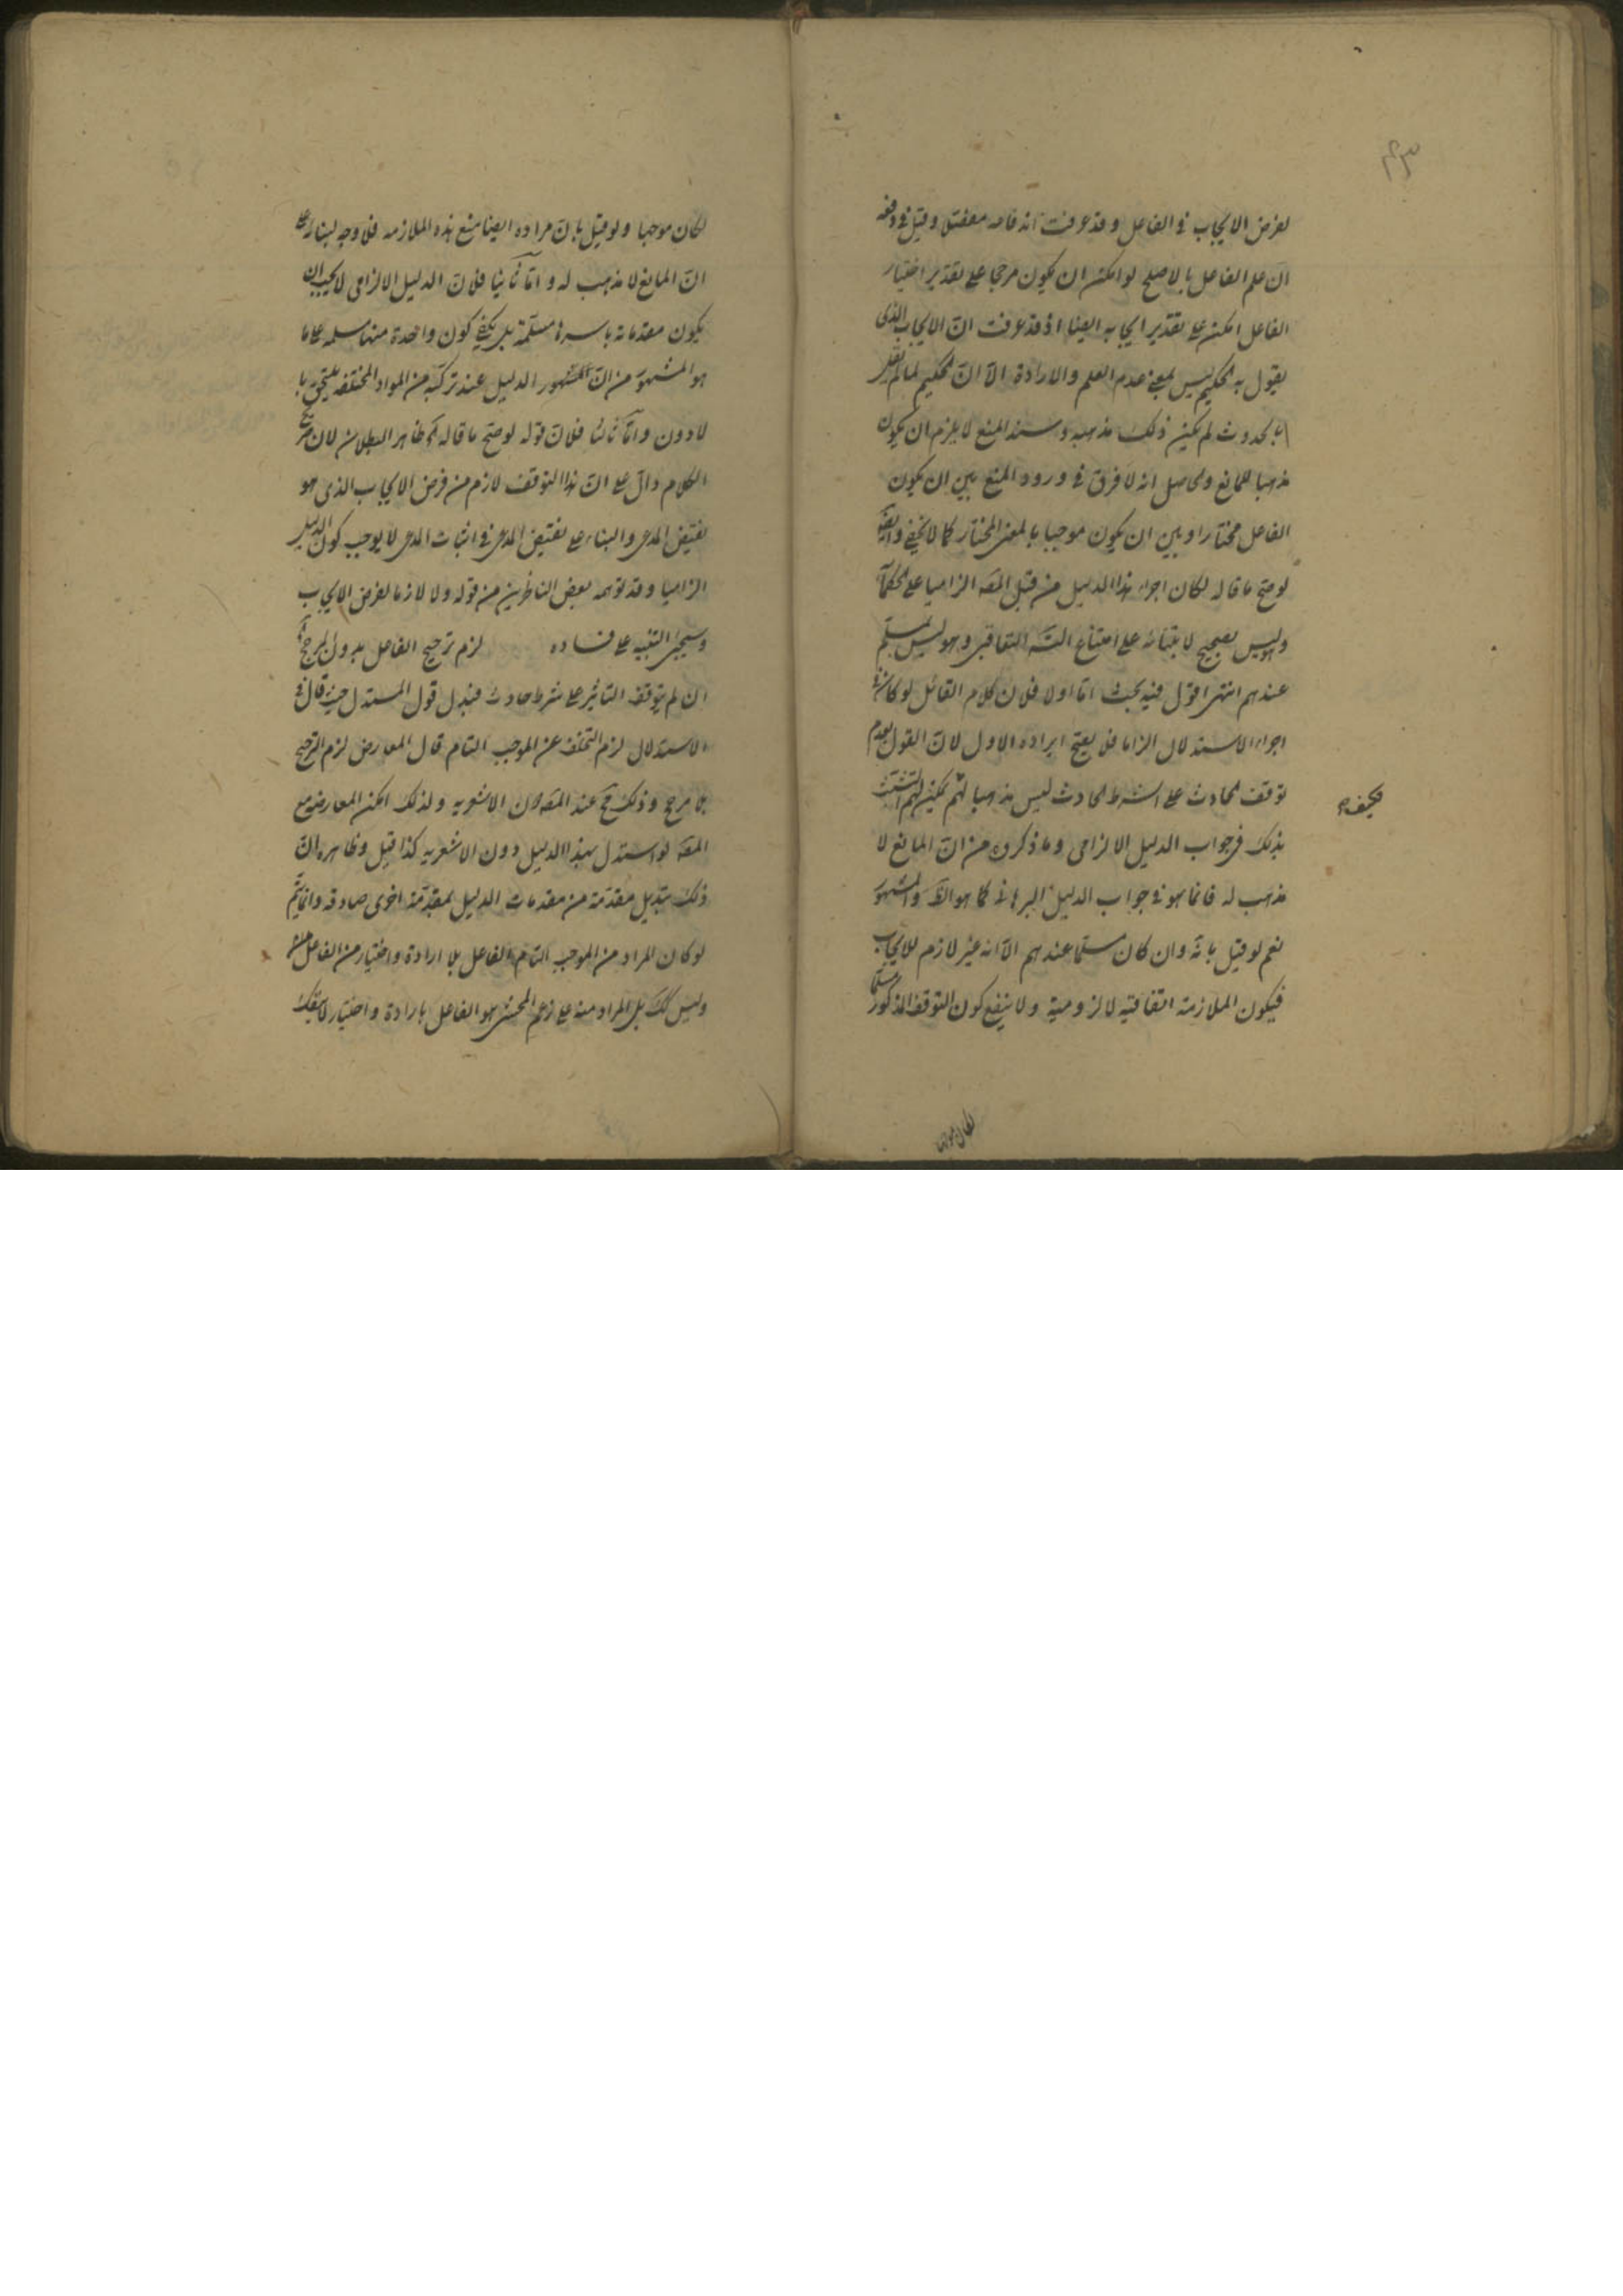 ٤٣
لفرض الايجاب فى الفاعل وقد عرفت اندفاعه مفصلا وقيل فى دفعه
ان علم الفاعل بالاصلح لو امكن ان يكون مرجحا على تقدير اختيار
الفاعل امكن على تقدير ايجابه ايضا اذ قد عرفت ان الايجاب الذى
يقول به الحكيم ليس بمعنى عدم العلم والارادة الا ان الحكيم لما لم يقل
بالحدوث لم يكن ذلك مذهبه وسند المنع لا يلزم ان يكون
مذهبا للمانع والحاصل انه لا فرق فى ورود المنع بين ان يكون
الفاعل مختارا وبين ان يكون موجبا بالمعنى المختار كما لا يخفى وايضا
لو صح ما قاله لكان اجراء هذا الدليل من قبل المصه الزاميا على الحكماء
وليس بصحيح لابتنائه على امتناع التسه التعاقبى وهو ليس بمسلم
عندهم انتهى اقول فيه بحث اما اولا فلان كلام القائل لو كان فى
اجراء الاستدلال الزاما فلا يصح ايراده الاول لان القول بعدم
توقف الحادث على الشرط الحادث ليس مذهبا لهم يمكن لهم التشبث
فكيف
بذلك فى جواب الدليل الالزامى وما ذكروه من ان المانع لا
مذهب له فانما هو فى جواب الدليل البرهانى كما هو الظ والمشهور
نعم لو قيل بانه وان كان مسلما عندهم الا انه غير لازم للايجاب
فيكون الملازمة اتفاقية لا لزومية ولا ينفع كون التوقف المذكور مسلما
لكان موجبا
لكان موجبا ولو قيل بان مراده ايضا منع هذه الملازمه فلا وجه لبنائه على
ان المانع لا مذهب له و اما ثانيا فلان الدليل الالزامى لا يجب ان
يكون مقدماته باسرها مسلمة بل يكفى كون واحدة منها مسلمه على ما
هو المشهور من ان المشهور الدليل عند تركبه من المواد المختلفه يلتحق با
لادون واما ثالثا فلان قوله لو صح ما قاله ظاهر البطلان لان
الكلام دال على ان هذا التوقف لازم من فرض الايجاب الذى هو
نقيض المدعى والبناء على نقيض المدعى فى اثبات المدعى لا يوجب كون الدليل
الزاميا وقد توهمه بعض الناظرين من قوله ولا لازما لفرض الايجاب
وسيجئ التنبيه على فساده لزم ترجيح الفاعل بدون المرجح
ان لم يتوقف التاثير على شرط حادث فبدل قول المستدل حيث قال فى
الاستدلال لزم التخلف عن الموجب التام قال المعارض لزم الترجيح
بلا مرجح وذلك مح عند المصه دون الاشعريه ولذلك امكن المعارضه مع
المصه لو استدل بهذا الدليل دون الاشعريه كذا قيل وظاهره ان
ذلك تبديل مقدمة من مقدمات الدليل بمقدمة اخرى صادقه وانما يتم
لو كان المراد من الموجب التام الفاعل بلا ارادة واختيار من الفاعل
وليس كك بل المراد منه على زعم المحشى هو الفاعل بارادة واختيار لا ينفك